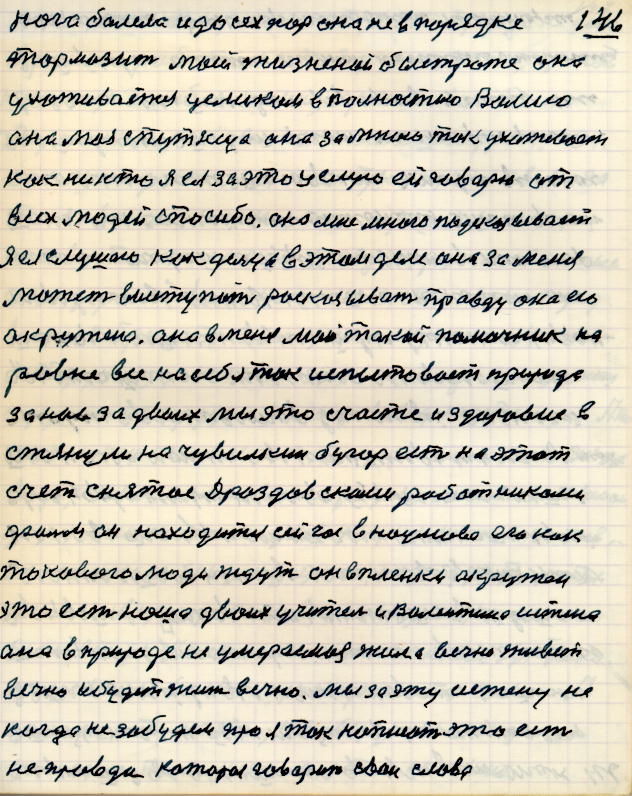 нога болела и до сех пор она не в порядке 146
тормозит маей жизненой быстроте она
ухаживается целиком в полностию Валию
ана моя спутница она за мною так ухаживает
как никто я ея за это целую ей говарю от
всех людей спосибо. она мне много подсказывает
я ея слушаю как донца в этом деле она за меня
может выступит росказыват правду она ею
окружена. она в меня мой такой памочник на
ровне все на себя так испытовает природа
за нов за двоих мы это счастие и здоровие в
стянули на чувилкин бугор ест на этот
счет снятое Дроздовскоми работникоми
филм он находится сейчас в наумова его как
токового люди ждут он в пленки окружон
это ест наша двоих учител и Валентина истена
ана в природе не умераемая жила вечно живет
вечно и будет жит вечно. мы за эту истену не
когда не забудем про я так написат это ест
не правда которая говарит свои слова